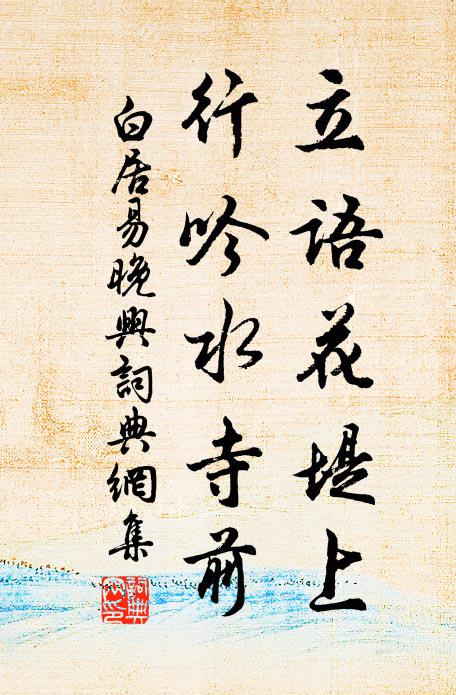 立語花堤上
行吟水寺前
白居易晚興詞典網集